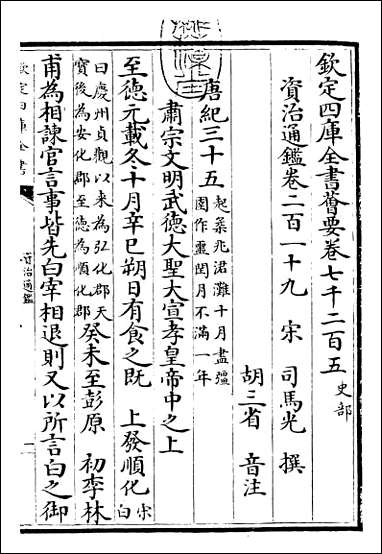 欽定四庫全書薈要卷七千二百五 史部
資治通鑑卷二百一十九 宋 司馬光 撰
胡三省 音注
唐紀三十五 起柔兆涒灘十月盡彊
圉作噩閏月不滿一年
肅宗文明武德大聖大宣孝皇帝中之上
至德元載冬十月辛巳朔日有食之既 上發順化 宋白
曰慶州貞觀以來為弘化郡天
寶後為安化郡至德為順化郡
癸未至彭原 初李林
甫為相諫官言事皆先白宰相退則又以所言白之御
欽定四庫全書
資治通鑑